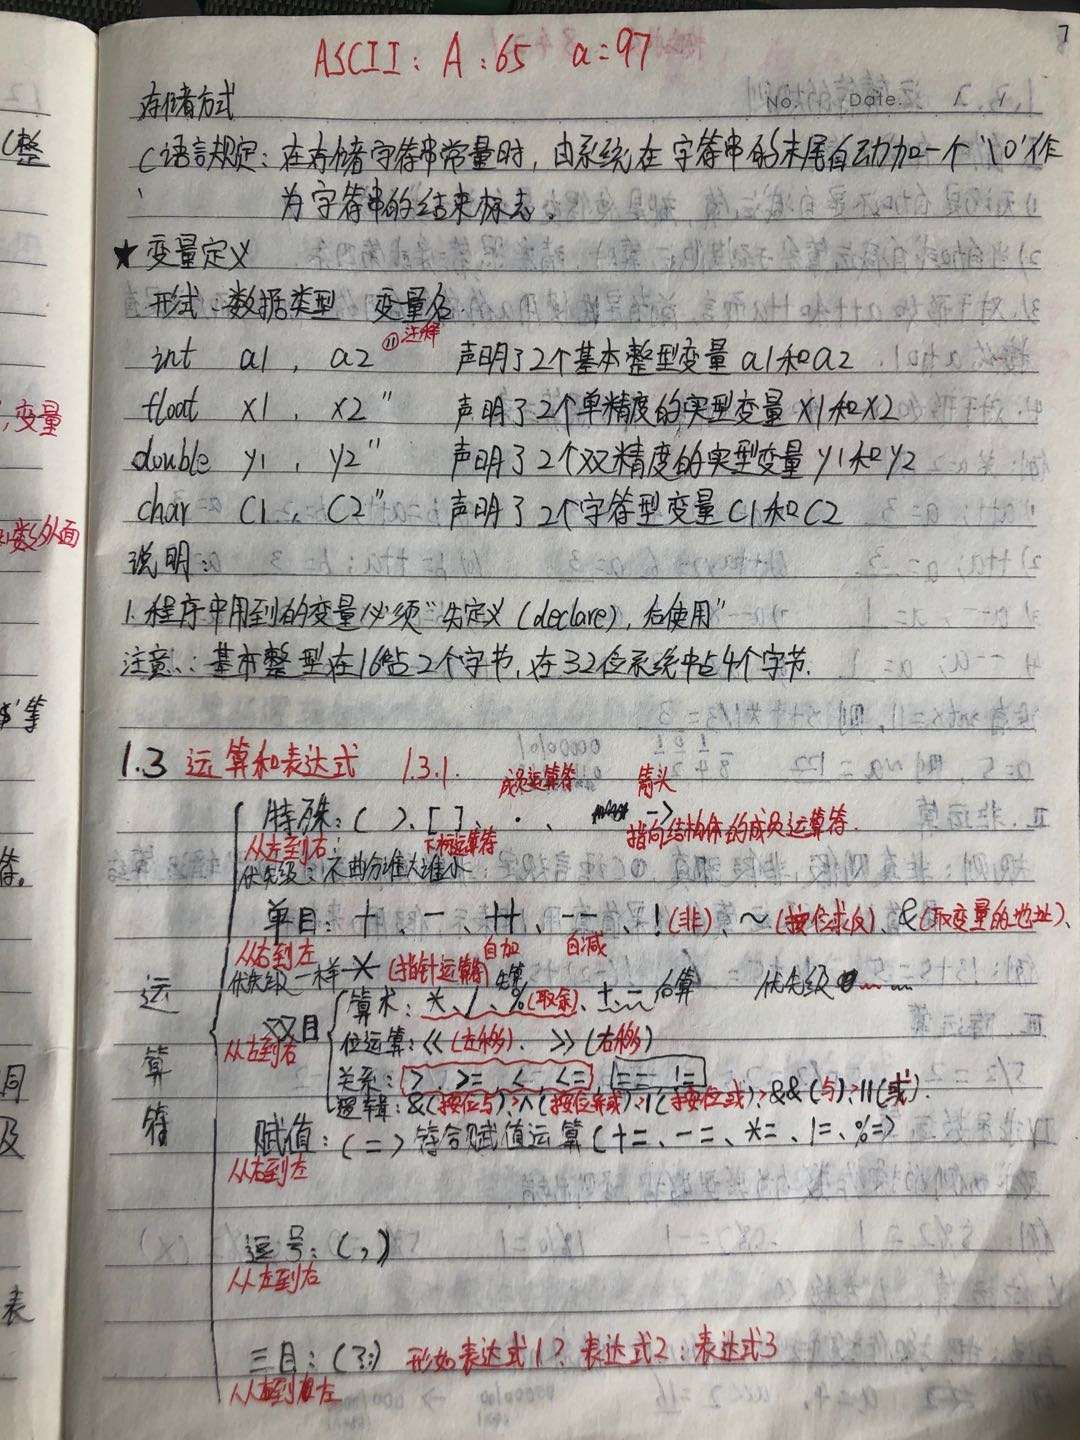 ASCII: A:65 a=97
7
No. Date.
存储方式
C语言规定:在存储字符串常量时,由系统在字符串的末尾自动加一个'\0'作
为字符串的结束标志。
★ 变量定义
形式:数据类型 变量名
int a1, a2 (11)注释 声明了2个基本整型变量a1和a2
float x1, x2 " 声明了2个单精度的实型变量X1和X2
double y1, y2 " 声明了2个双精度的实型变量y1和y2
char C1, C2 " 声明了2个字符型变量C1和C2
说明:
1.程序中用到的变量必须"先定义(declare),后使用"
注意:基本整型在16占2个字节,在32位系统中占4个字节.
1.3 运算和表达式 1.3.1.
成员运算符 箭头
特殊:( )、[ ]、·、 ->
从左到右 下标运算符 指向结构体的成员运算符.
优先级:不曲分谁大谁小
单目:+、-、++、--、!(非)、~(按位求反)、&(取变量的地址)、
从右到左 自加 自减
优先级一样 *(指针运算符)
先算
双目 算术:*、/、%(取余)、+、- 后算 优先级
从左到右 位运算:<<(左移)、>>(右移)
关系: >、>=、<、<=、== !=
逻辑:&(按位与)>^(按位异或)>|(按位或)>&&(与)>||(或).
赋值:(=)符合赋值运算(+=、-=、*=、/=、%=)
从右到左
逗号:(,)
从左到右
三目:(?:) 形如表达式1?表达式2:表达式3
运
算
符
(整
,变量
数外面
等
符。
同
及
表